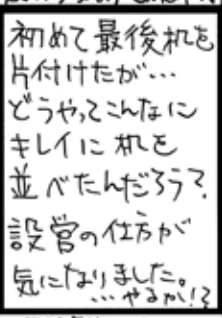 初めて最後机を
片付けたが…
どうやってこんなに
キレイに机を
並べたんだろう?
設営の仕方が
気になりました。
…やるか!?